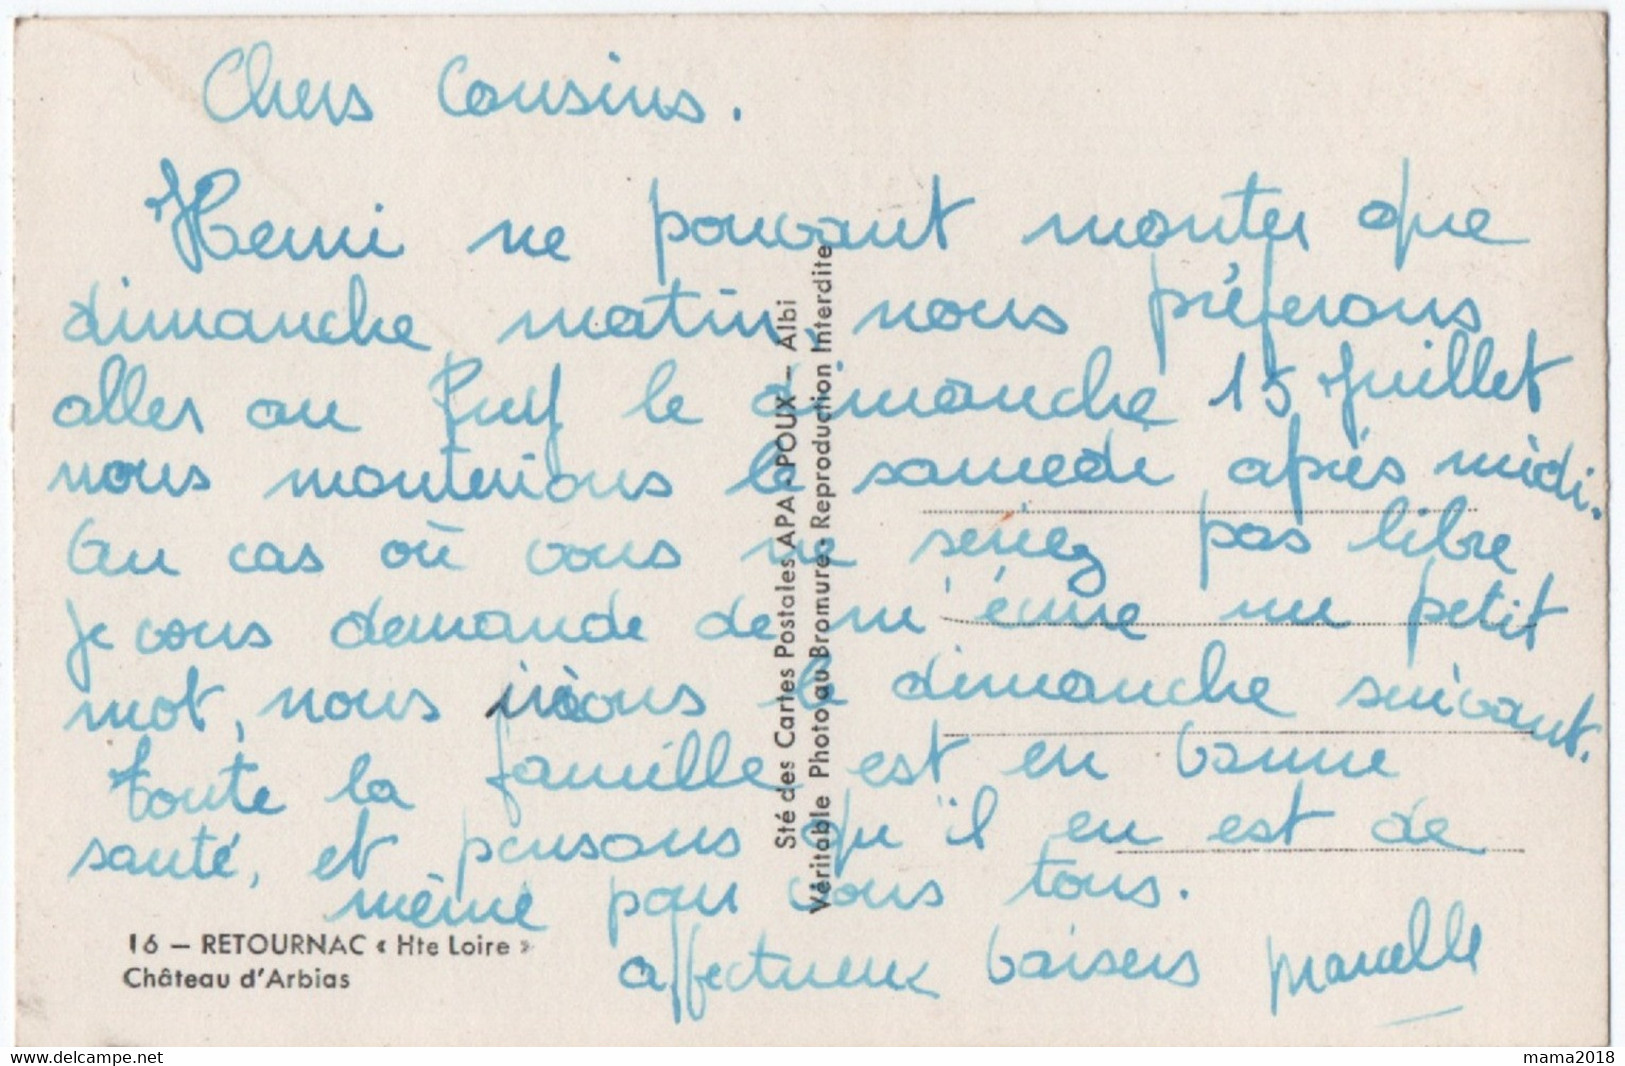 Chers Cousins.
Henri ne pouvant monter que
dimanche matin, nous préferons
aller au Puy le dimanche 15 Juillet
nous monterions le samedi après midi.
Au cas où vous ne seriez pas libre
je vous demande de m'écrire un petit
mot, nous irions le dimanche suivant.
Toute la famille est en bonne
santé, et pensons qu'il en est de
même pour vous tous.
affectueux baisers Marcelle
16 — RETOURNAC « Hte Loire »
Château d'Arbias
Sté des Cartes Postales APA - POUX — Albi
Véritable Photo au Bromure - Reproduction Interdite
www.delcampe.net
mama2018